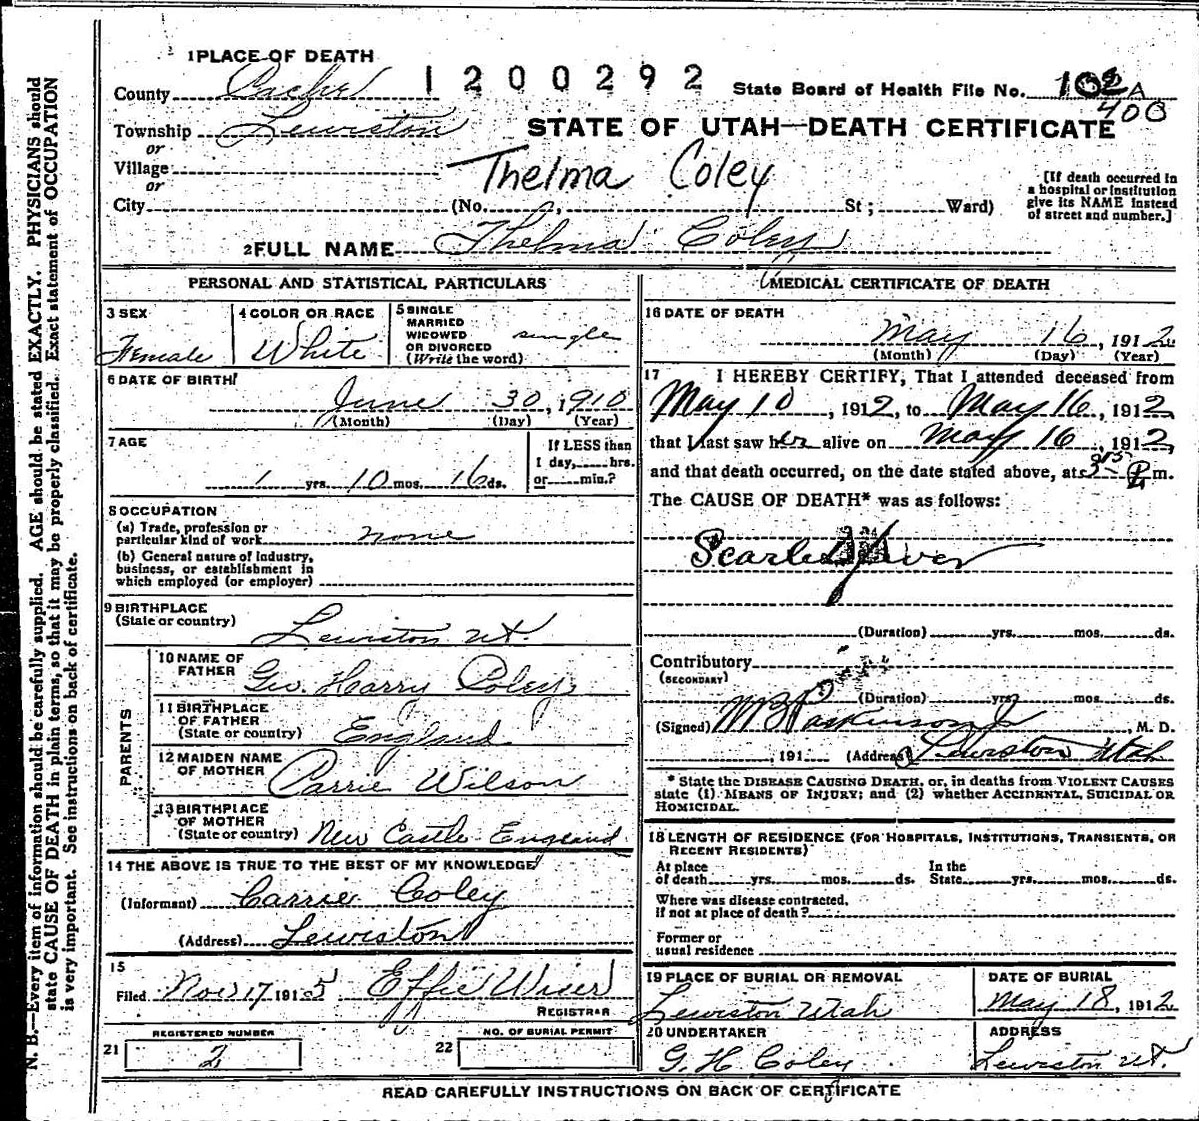 1 PLACE OF DEATH
1200292
County Cache
State Board of Health File No. 102 A
400
Township Lewiston
STATE OF UTAH—DEATH CERTIFICATE
or
Village
Thelma Coley
or
City (No. , St ; Ward)
[If death occurred in
a hospital or institution
give its NAME instead
of street and number.]
2 FULL NAME Thelma Coley
PERSONAL AND STATISTICAL PARTICULARS
3 SEX
Female
4 COLOR OR RACE
White
5 SINGLE
MARRIED
WIDOWED
OR DIVORCED
(Write the word)
single
6 DATE OF BIRTH
June 30, 1910
(Month) (Day) (Year)
7 AGE
1 yrs. 10 mos. 16 ds.
If LESS than
1 day, hrs.
or min.?
8 OCCUPATION
(a) Trade, profession or
particular kind of work none
(b) General nature of industry,
business, or establishment in
which employed (or employer)
9 BIRTHPLACE
(State or country)
Lewiston Ut.
PARENTS
10 NAME OF
FATHER
Geo. Harry Coley
11 BIRTHPLACE
OF FATHER
(State or country)
England
12 MAIDEN NAME
OF MOTHER
Carrie Wilson
13 BIRTHPLACE
OF MOTHER
(State or country)
New Castle England
14 THE ABOVE IS TRUE TO THE BEST OF MY KNOWLEDGE
(Informant) Carrie Coley
(Address) Lewiston
15
Filed Nov 17 1915 Effie Wiser
REGISTRAR
REGISTERED NUMBER
21 2
NO. OF BURIAL PERMIT
22
MEDICAL CERTIFICATE OF DEATH
16 DATE OF DEATH
May 16, 1912
(Month) (Day) (Year)
17 I HEREBY CERTIFY, That I attended deceased from
May 10, 1912, to May 16, 1912,
that I last saw her alive on May 16, 1912,
and that death occurred, on the date stated above, at P m.
The CAUSE OF DEATH* was as follows:
Scarlet Fever
(Duration) yrs. mos. ds.
Contributory
(SECONDARY)
(Duration) yrs. mos. ds.
(Signed) W B Parkinson Jr, M. D.
, 191 (Address) Lewiston Utah
* State the DISEASE CAUSING DEATH, or, in deaths from VIOLENT CAUSES
state (1) MEANS OF INJURY; and (2) whether ACCIDENTAL, SUICIDAL OR
HOMICIDAL.
18 LENGTH OF RESIDENCE (FOR HOSPITALS, INSTITUTIONS, TRANSIENTS, OR
RECENT RESIDENTS)
At place
of death yrs. mos. ds.
In the
State yrs. mos. ds.
Where was disease contracted,
if not at place of death?
Former or
usual residence
19 PLACE OF BURIAL OR REMOVAL
Lewiston Utah
DATE OF BURIAL
May 18, 1912
20 UNDERTAKER
G. H. Coley
ADDRESS
Lewiston Ut.
READ CAREFULLY INSTRUCTIONS ON BACK OF CERTIFICATE
N. B.—Every item of information should be carefully supplied. AGE should be stated EXACTLY. PHYSICIANS should
state CAUSE OF DEATH in plain terms, so that it may be properly classified. Exact statement of OCCUPATION
is very important. See instructions on back of certificate.